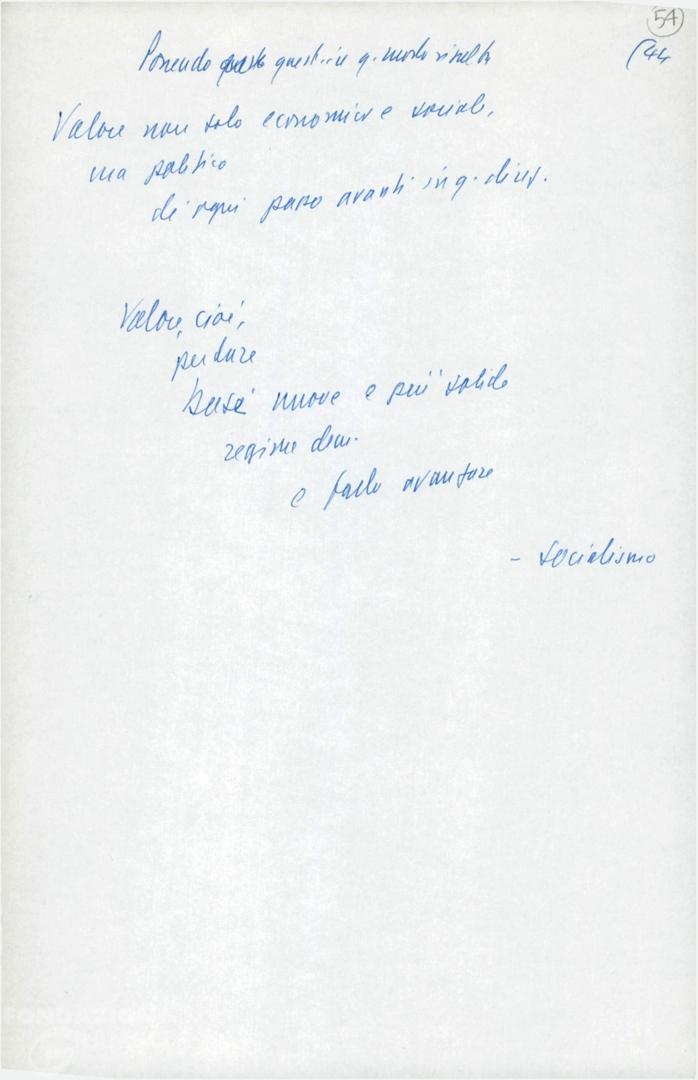 54
44
Ponendo questa in q. modo
Valore non solo economico e sociale,
ma politico
di ogni passo avanti in q. direz.
Valore, cioè,
per dare
basi nuove e più solide
regime dem.
e farlo avanzare
- socialismo
FONDAZIONE